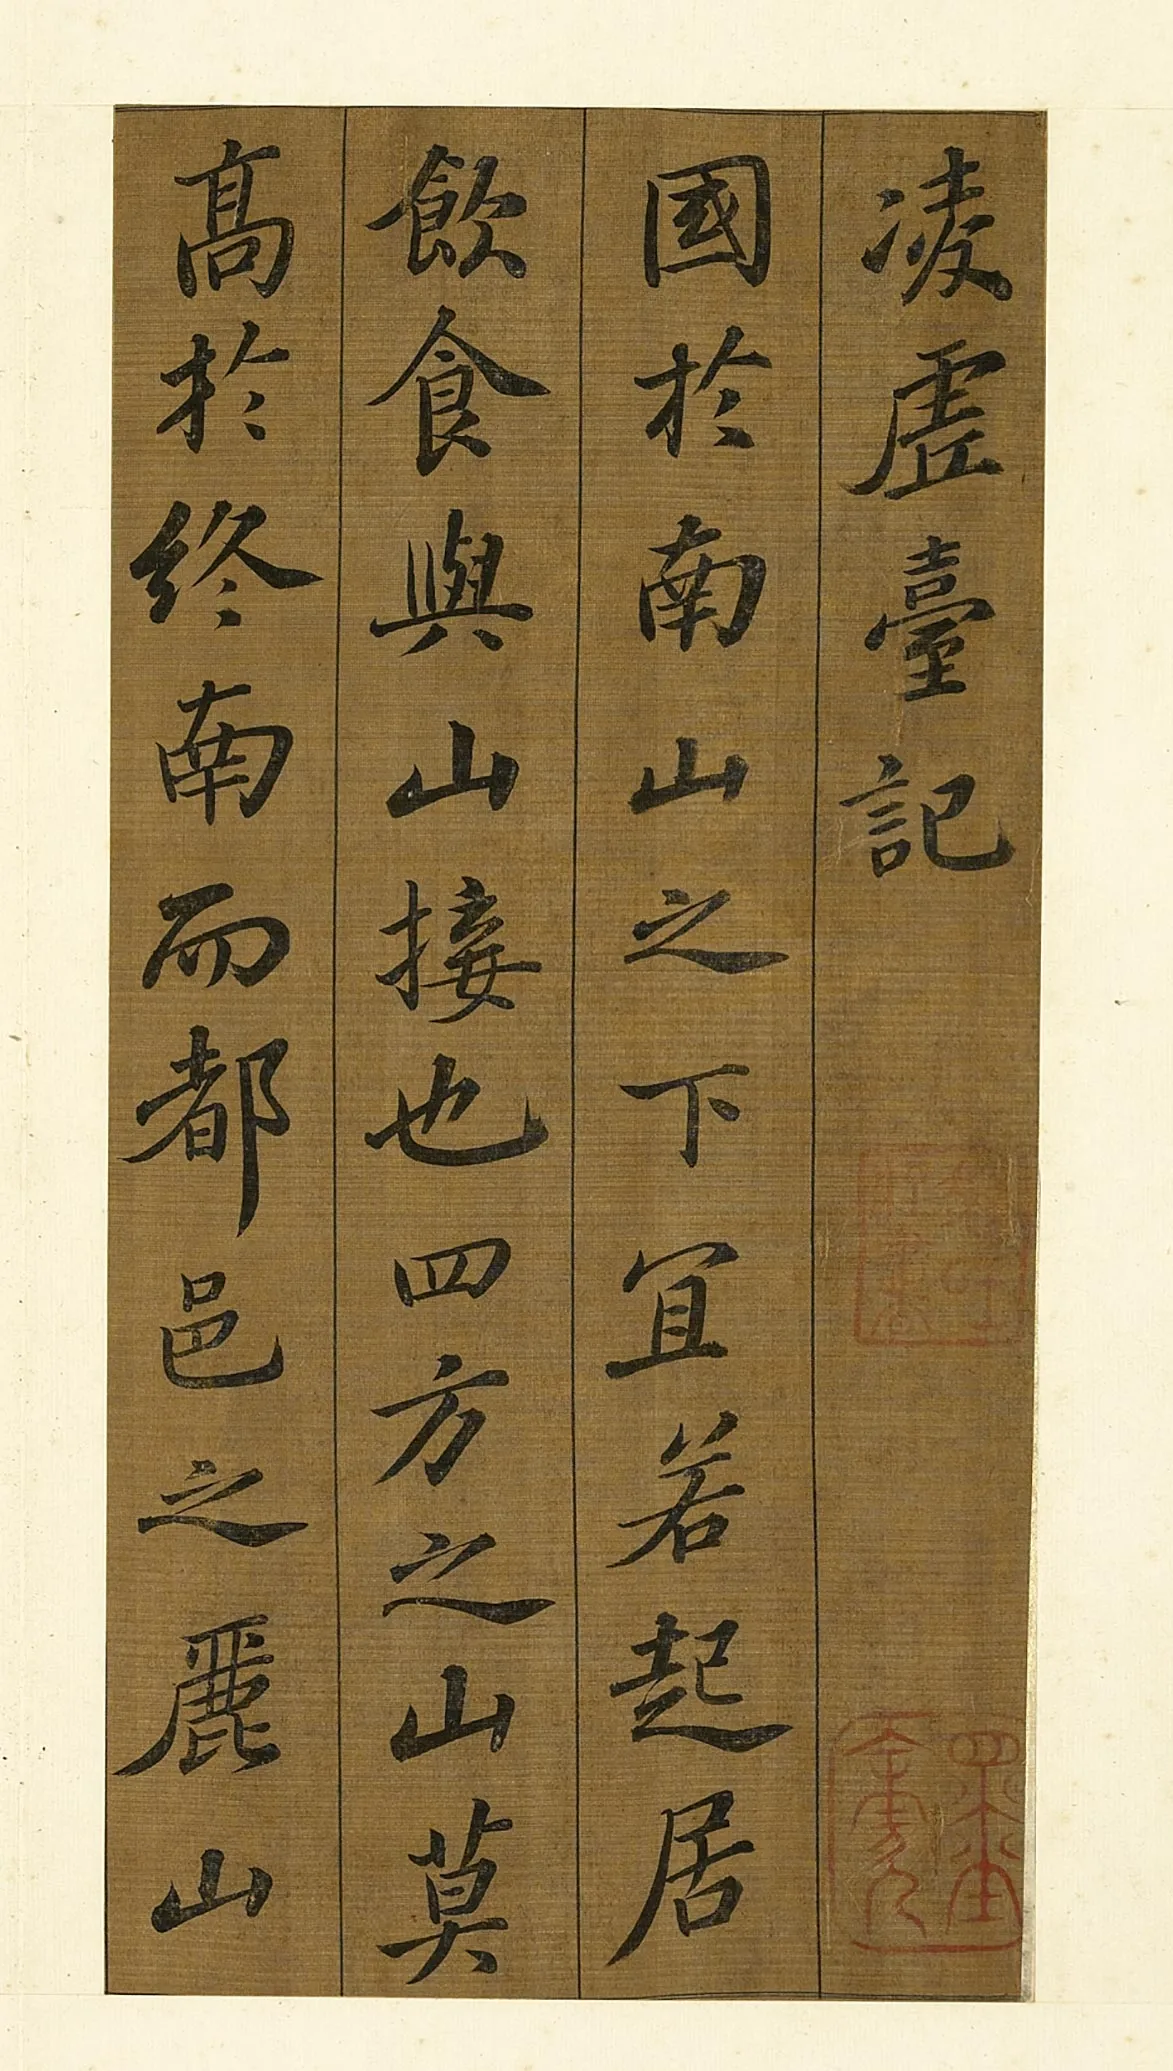 凌虛臺記
國於南山之下宜若起居
飲食與山接也四方之山莫
高於終南而都邑之麗山